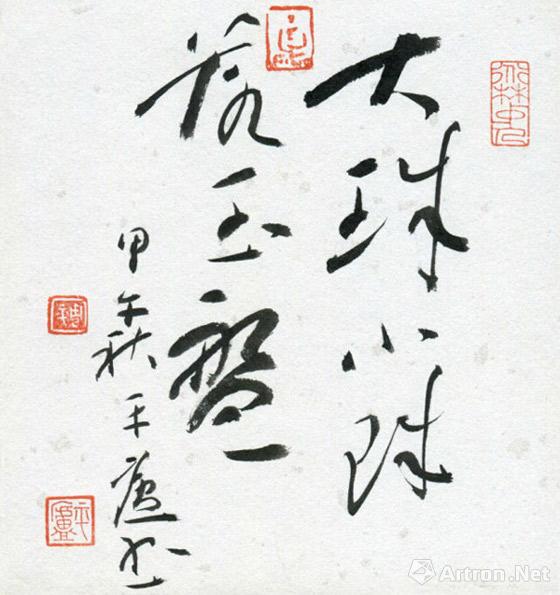 大珠小珠
落玉盤
甲午秋平廬書
Artron.Net